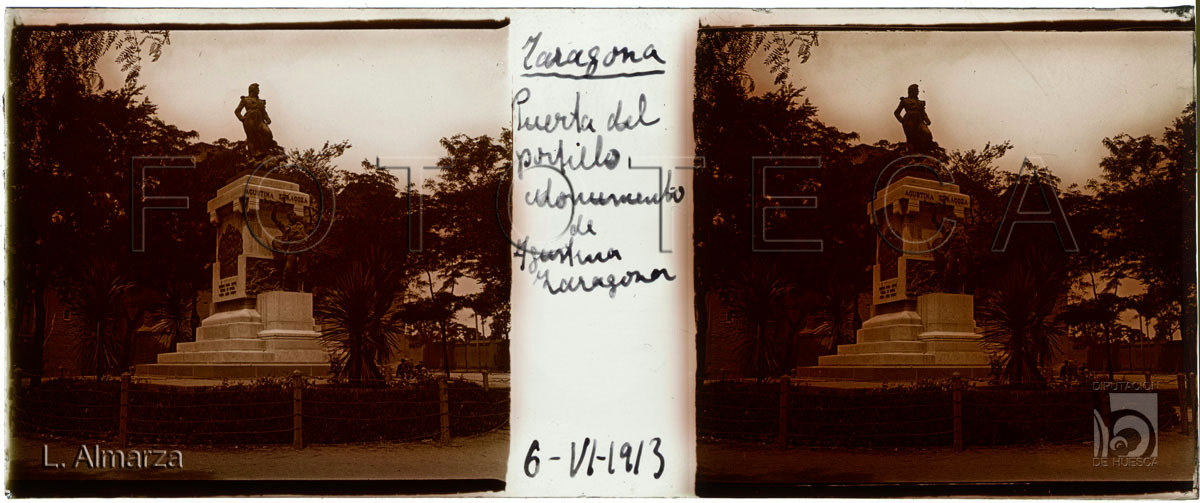 Zaragoza
Puerta del
portillo.
Monumento
de
Agustina
Zaragoza
6-VI-1913
AGUSTINA ZARAGOZA
AGUSTINA ZARAGOZA
FOTOTECA
L. Almarza
DIPUTACIÓN
DE HUESCA